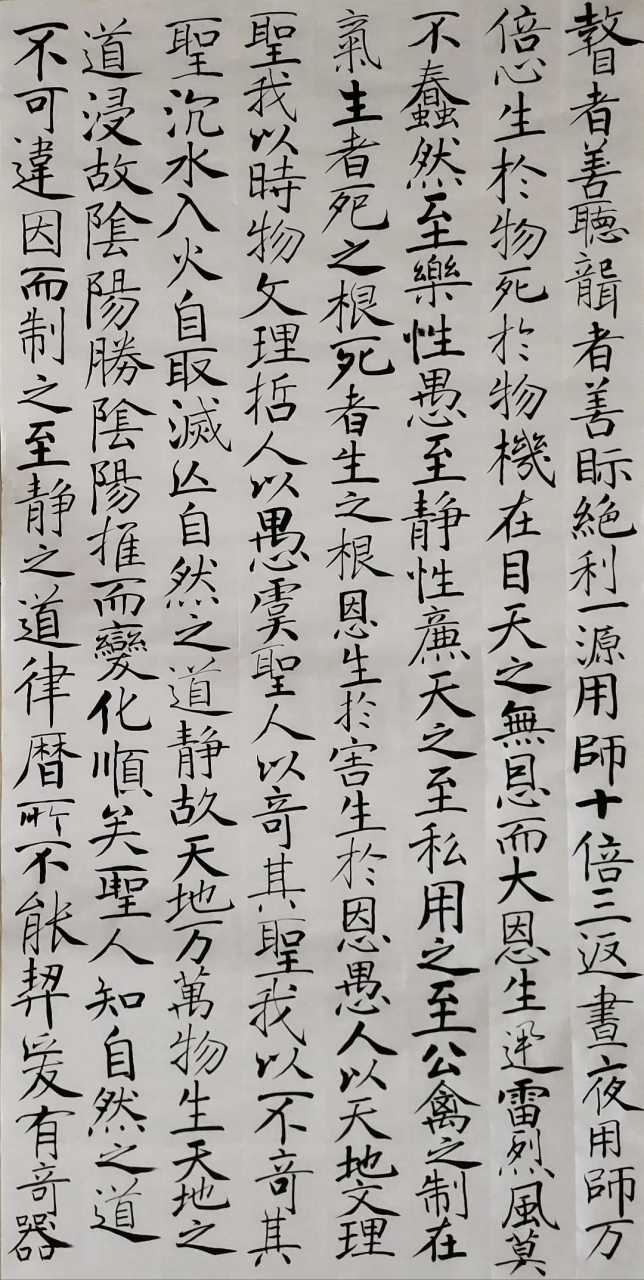 瞽者善聽聾者善眎絕利一源用師十倍三返晝夜用師万
倍心生於物死於物機在目天之無恩而大恩生迅雷烈風莫
不蠢然至樂性愚至靜性廉天之至私用之至公禽之制在
氣生者死之根死者生之根恩生於害生於恩愚人以天地文理
聖我以時物文理哲人以愚虞聖人以奇其聖我以不奇其
聖沉水入火自取滅亾自然之道靜故天地万萬物生天地之
道浸故陰陽勝陰陽推而變化順矣聖人知自然之道
不可違因而制之至靜之道律暦所不能契爰有奇器